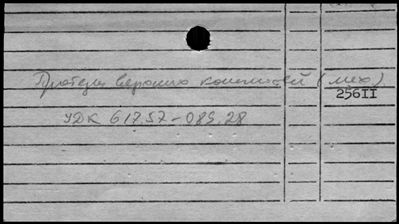 Протезы верхних конечностей (мех)
256II
УДК 617.57-089.28